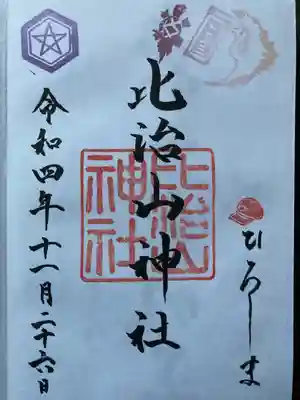 ひろしま
比治山神社
比治山神社
令和四年十一月二十六日